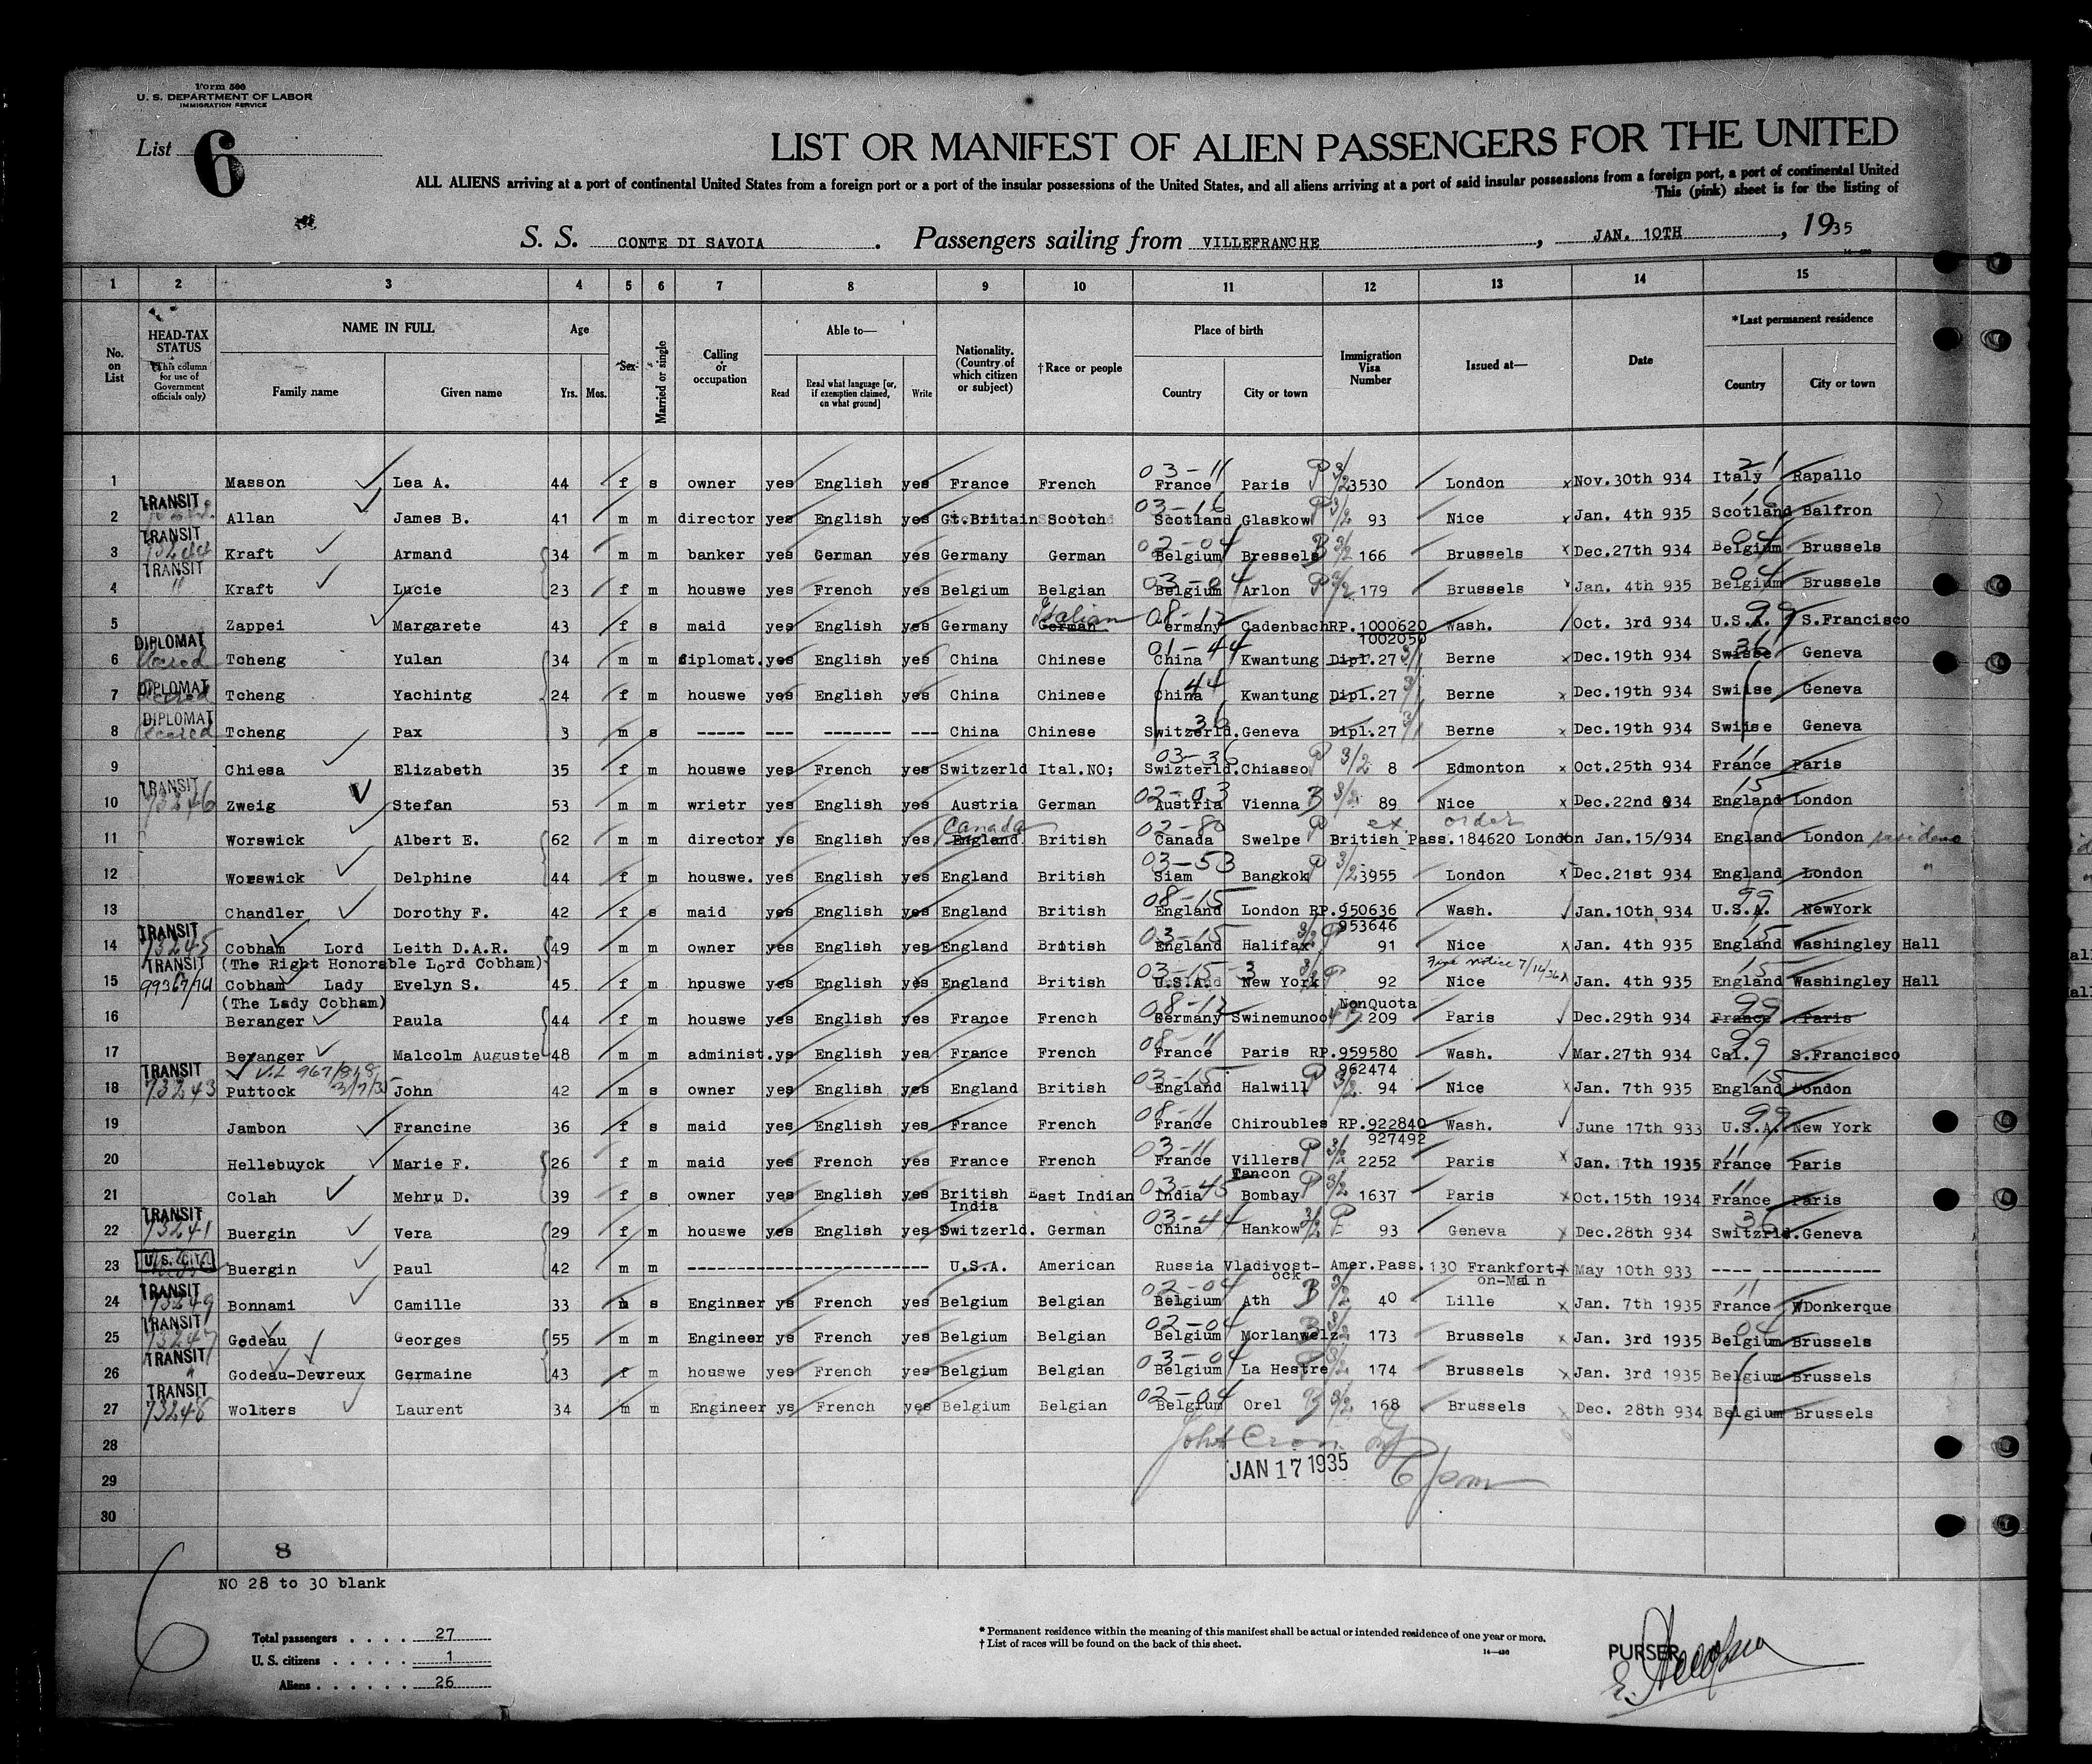 Form 500
U. S. DEPARTMENT OF LABOR
IMMIGRATION SERVICE
List 6
LIST OR MANIFEST OF ALIEN PASSENGERS FOR THE UNITED
ALL ALIENS arriving at a port of continental United States from a foreign port or a port of the insular possessions of the United States, and all aliens arriving at a port of said insular possessions from a foreign port, a port of continental United
This (pink) sheet is for the listing of
S. S. CONTE DI SAVOIA . Passengers sailing from VILLEFRANCHE , JAN. 10TH , 1935
1 2 3 4 5 6 7 8 9 10 11 12 13 14 15
No. on List
HEAD-TAX STATUS (This column for use of Government officials only)
NAME IN FULL Family name Given name
Age Yrs. Mos.
Sex
Married or single
Calling or occupation
Able to— Read Read what language [or, if exemption claimed, on what ground] Write
Nationality. (Country of which citizen or subject)
†Race or people
Place of birth Country City or town
Immigration Visa Number
Issued at—
Date
*Last permanent residence Country City or town
1 Masson Lea A. 44 f s owner yes English yes France French 03-11 France Paris P 3/2 3530 London Nov.30th 934 Italy Rapallo
2 TRANSIT Allan James B. 41 m m director yes English yes Gt.Britain Scotch 03-16 Scotland Glaskow P 3/2 93 Nice Jan. 4th 935 Scotland Balfron
3 TRANSIT 73244 Kraft Armand 34 m m banker yes German yes Germany German 02-04 Belgium Bressels B 3/2 166 Brussels Dec.27th 934 04 Belgium Brussels
4 TRANSIT " Kraft Lucie 23 f m houswe yes French yes Belgium Belgian 03-04 Belgium Arlon P 3/2 179 Brussels Jan. 4th 935 04 Belgium Brussels
5 Zappei Margarete 43 f s maid yes English yes Germany German Italian 08-12 Germany Cadenbach RP.1000620 1002050 Wash. Oct. 3rd 934 99 U.S.A. S.Francisco
6 DIPLOMAT Tcheng Yulan 34 m m diplomat. yes English yes China Chinese 01-44 China Kwantung Dipl.27 3/1 Berne Dec.19th 934 36 Swisse Geneva
7 DIPLOMAT Tcheng Yachintg 24 f m houswe yes English yes China Chinese 44 China Kwantung Dipl.27 3/1 Berne Dec.19th 934 Swiise Geneva
8 DIPLOMAT Tcheng Pax 3 m s ----- --- ------- --- China Chinese 36 Switzerld. Geneva Dipl.27 3/1 Berne Dec.19th 934 Swiise Geneva
9 Chiesa Elizabeth 35 f m houswe yes French yes Switzerld Ital.NO; 03-36 Swizterld. Chiasso P 3/2 8 Edmonton Oct.25th 934 11 France Paris
10 TRANSIT 73246 Zweig Stefan 53 m m wrietr yes English yes Austria German 02-03 Austria Vienna B 3/2 89 Nice Dec.22nd 934 15 England London
11 Worswick Albert E. 62 m m director ys English yes England Canada British 02-80 Canada Swelpe P ex order British Pass.184620 London Jan.15/934 England London
12 Worswick Delphine 44 f m houswe. yes English yes England British 03-53 Siam Bangkok P 3/2 3955 London Dec.21st 934 England London "
13 Chandler Dorothy F. 42 f s maid yes English yes England British 08-15 England London RP.950636 953646 Wash. Jan.10th 934 99 U.S.A. NewYork
14 TRANSIT 73245 Cobham Lord Leith D.A.R. 49 m m owner yes English yes England British 03-15 England Halifax 3/2 P 91 Nice Jan. 4th 935 15 England Washingley Hall
(The Right Honorable Lord Cobham)
15 TRANSIT 99367/161 Cobham Lady Evelyn S. 45 f m hpuswe yes English yes England British 03-15-3 U.S.A. New York 3/2 P 92 Nice Jan. 4th 935 15 England Washingley Hall
(The Lady Cobham)
16 Beranger Paula 44 f m houswe yes English yes France French 08-12 Germany Swinemunoo NonQuota 209 Paris Dec.29th 934 99 France Paris
17 Beranger Malcolm Auguste 48 m m administ. ys English yes France French 08-11 France Paris RP.959580 962474 Wash. Mar.27th 934 99 Cal. S.Francisco
18 TRANSIT 73243 Puttock John 42 m s owner yes English yes England British 03-15 England Halwill P 3/2 94 Nice Jan. 7th 935 15 England London
19 Jambon Francine 36 f s maid yes English yes France French 08-11 France Chiroubles RP.922840 927492 Wash. June 17th 933 99 U.S.A. New York
20 Hellebuyck Marie F. 26 f m maid yes French yes France French 03-11 France Villers Tancon P 3/2 2252 Paris Jan. 7th 1935 11 France Paris
21 Colah Mehru D. 39 f s owner yes English yes British India East Indian 03-45 India Bombay P 3/2 1637 Paris Oct.15th 1934 11 France Paris
22 TRANSIT 73241 Buergin Vera 29 f m houswe yes English yes Switzerld. German 03-44 China Hankow 3/2 P 93 Geneva Dec.28th 934 36 Switzrld. Geneva
23 U.S. CIT. Buergin Paul 42 m m ---------------------- U.S.A. American Russia Vladivostock Amer.Pass. 130 Frankfort-on-Main May 10th 933 ---- ------------
24 TRANSIT 73249 Bonnami Camille 33 m s Engineer ys French yes Belgium Belgian 02-04 Belgium Ath B 3/2 40 Lille Jan. 7th 1935 11 France Donkerque
25 TRANSIT 73247 Godeau Georges 55 m m Engineer ys French yes Belgium Belgian 02-04 Belgium Morlanwelz B 3/2 173 Brussels Jan. 3rd 1935 04 Belgium Brussels
26 TRANSIT " Godeau-Devreux Germaine 43 f m houswe yes French yes Belgium Belgian 03-04 Belgium La Hestre P 3/2 174 Brussels Jan. 3rd 1935 Belgium Brussels
27 TRANSIT 73248 Wolters Laurent 34 m m Engineer ys French yes Belgium Belgian 02-04 Belgium Orel B 3/2 168 Brussels Dec. 28th 934 Belgium Brussels
28
29 JAN 17 1935
30
8
NO 28 to 30 blank
6
Total passengers . . . . 27
U. S. citizens . . . . . 1
Aliens . . . . . . 26
* Permanent residence within the meaning of this manifest shall be actual or intended residence of one year or more.
† List of races will be found on the back of this sheet.
14—430
PURSER